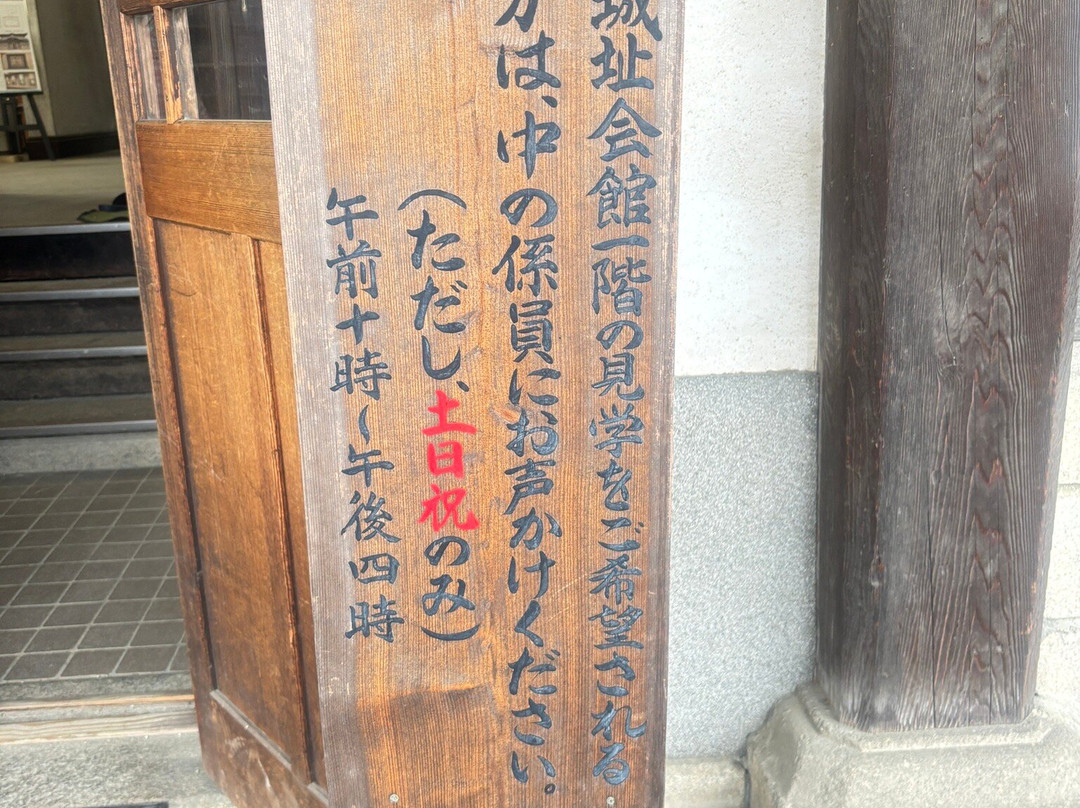 城址会館一階の見学をご希望される
方は、中の係員にお声かけください。
（ただし、土日祝のみ）
午前十時～午後四時